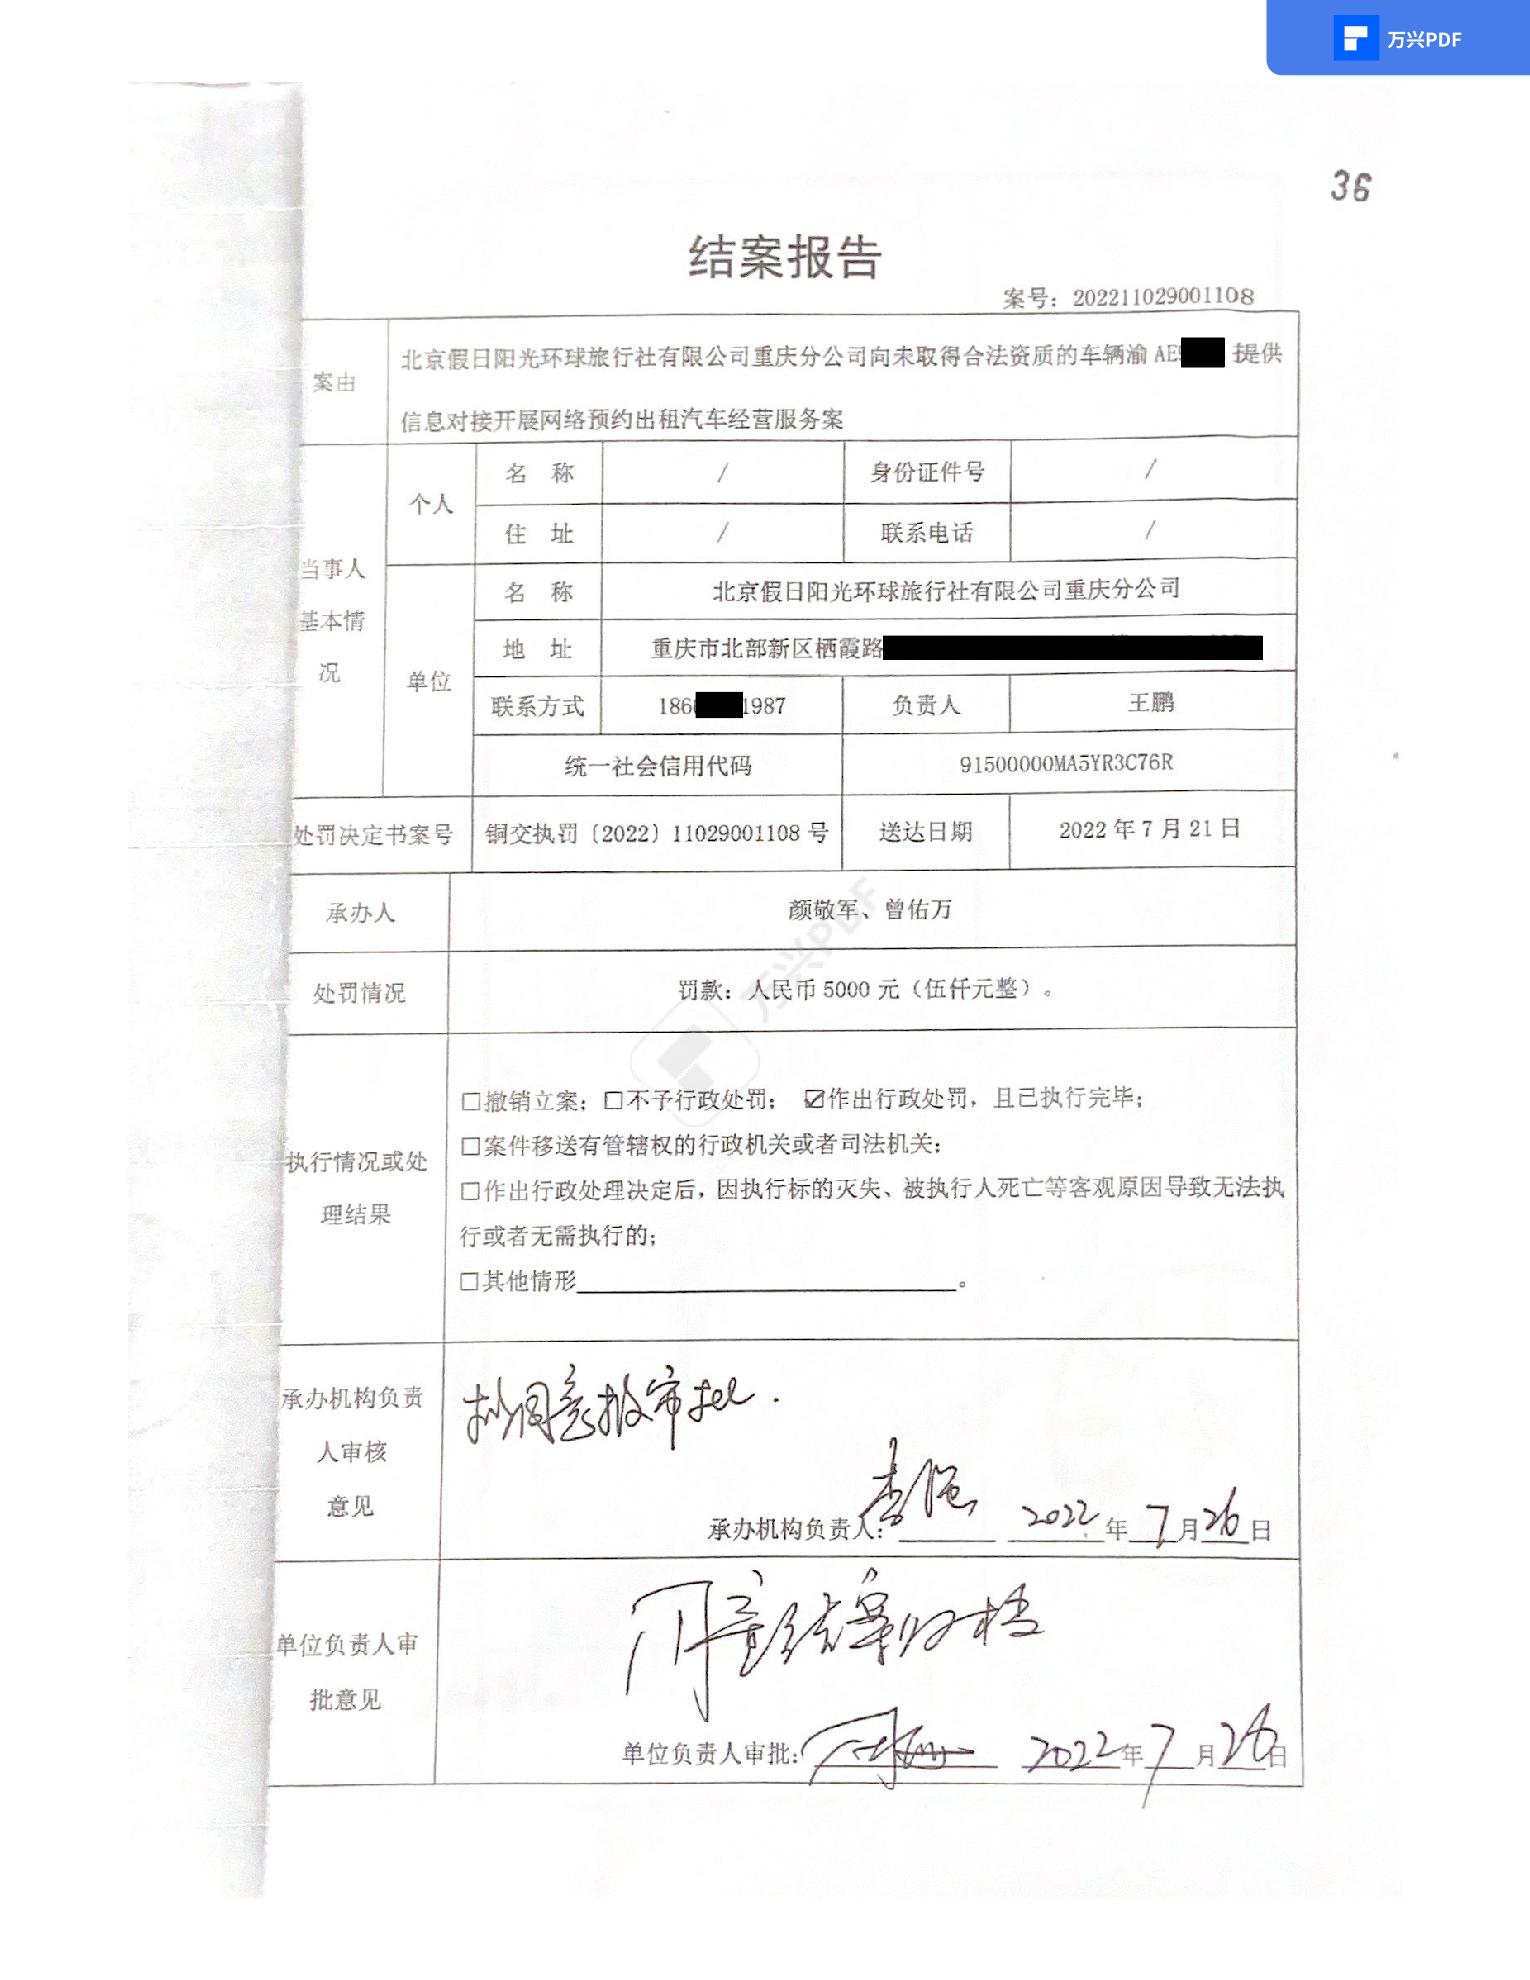 万兴PDF
36
结案报告
案号：202211029001108
案由
北京假日阳光环球旅行社有限公司重庆分公司向未取得合法资质的车辆渝 AE 提供
信息对接开展网络预约出租汽车经营服务案
当事人
基本情
况
个人
名 称 / 身份证件号 /
住 址 / 联系电话 /
单位
名 称 北京假日阳光环球旅行社有限公司重庆分公司
地 址 重庆市北部新区栖霞路
联系方式 186 1987 负责人 王鹏
统一社会信用代码 91500000MA5YR3C76R
处罚决定书案号 铜交执罚〔2022〕11029001108 号 送达日期 2022 年 7 月 21 日
承办人 颜敬军、曾佑万
处罚情况 罚款：人民币 5000 元（伍仟元整）。
执行情况或处
理结果
☐撤销立案；☐不予行政处罚； ☑作出行政处罚，且已执行完毕；
☐案件移送有管辖权的行政机关或者司法机关；
☐作出行政处理决定后，因执行标的灭失、被执行人死亡等客观原因导致无法执
行或者无需执行的；
☐其他情形 。
承办机构负责
人审核
意见
拟同意报审批.
承办机构负责人： 李强 2022 年 7 月 26 日
单位负责人审
批意见
同意结案归档
单位负责人审批： 2022 年 7 月 26 日
万兴PDF